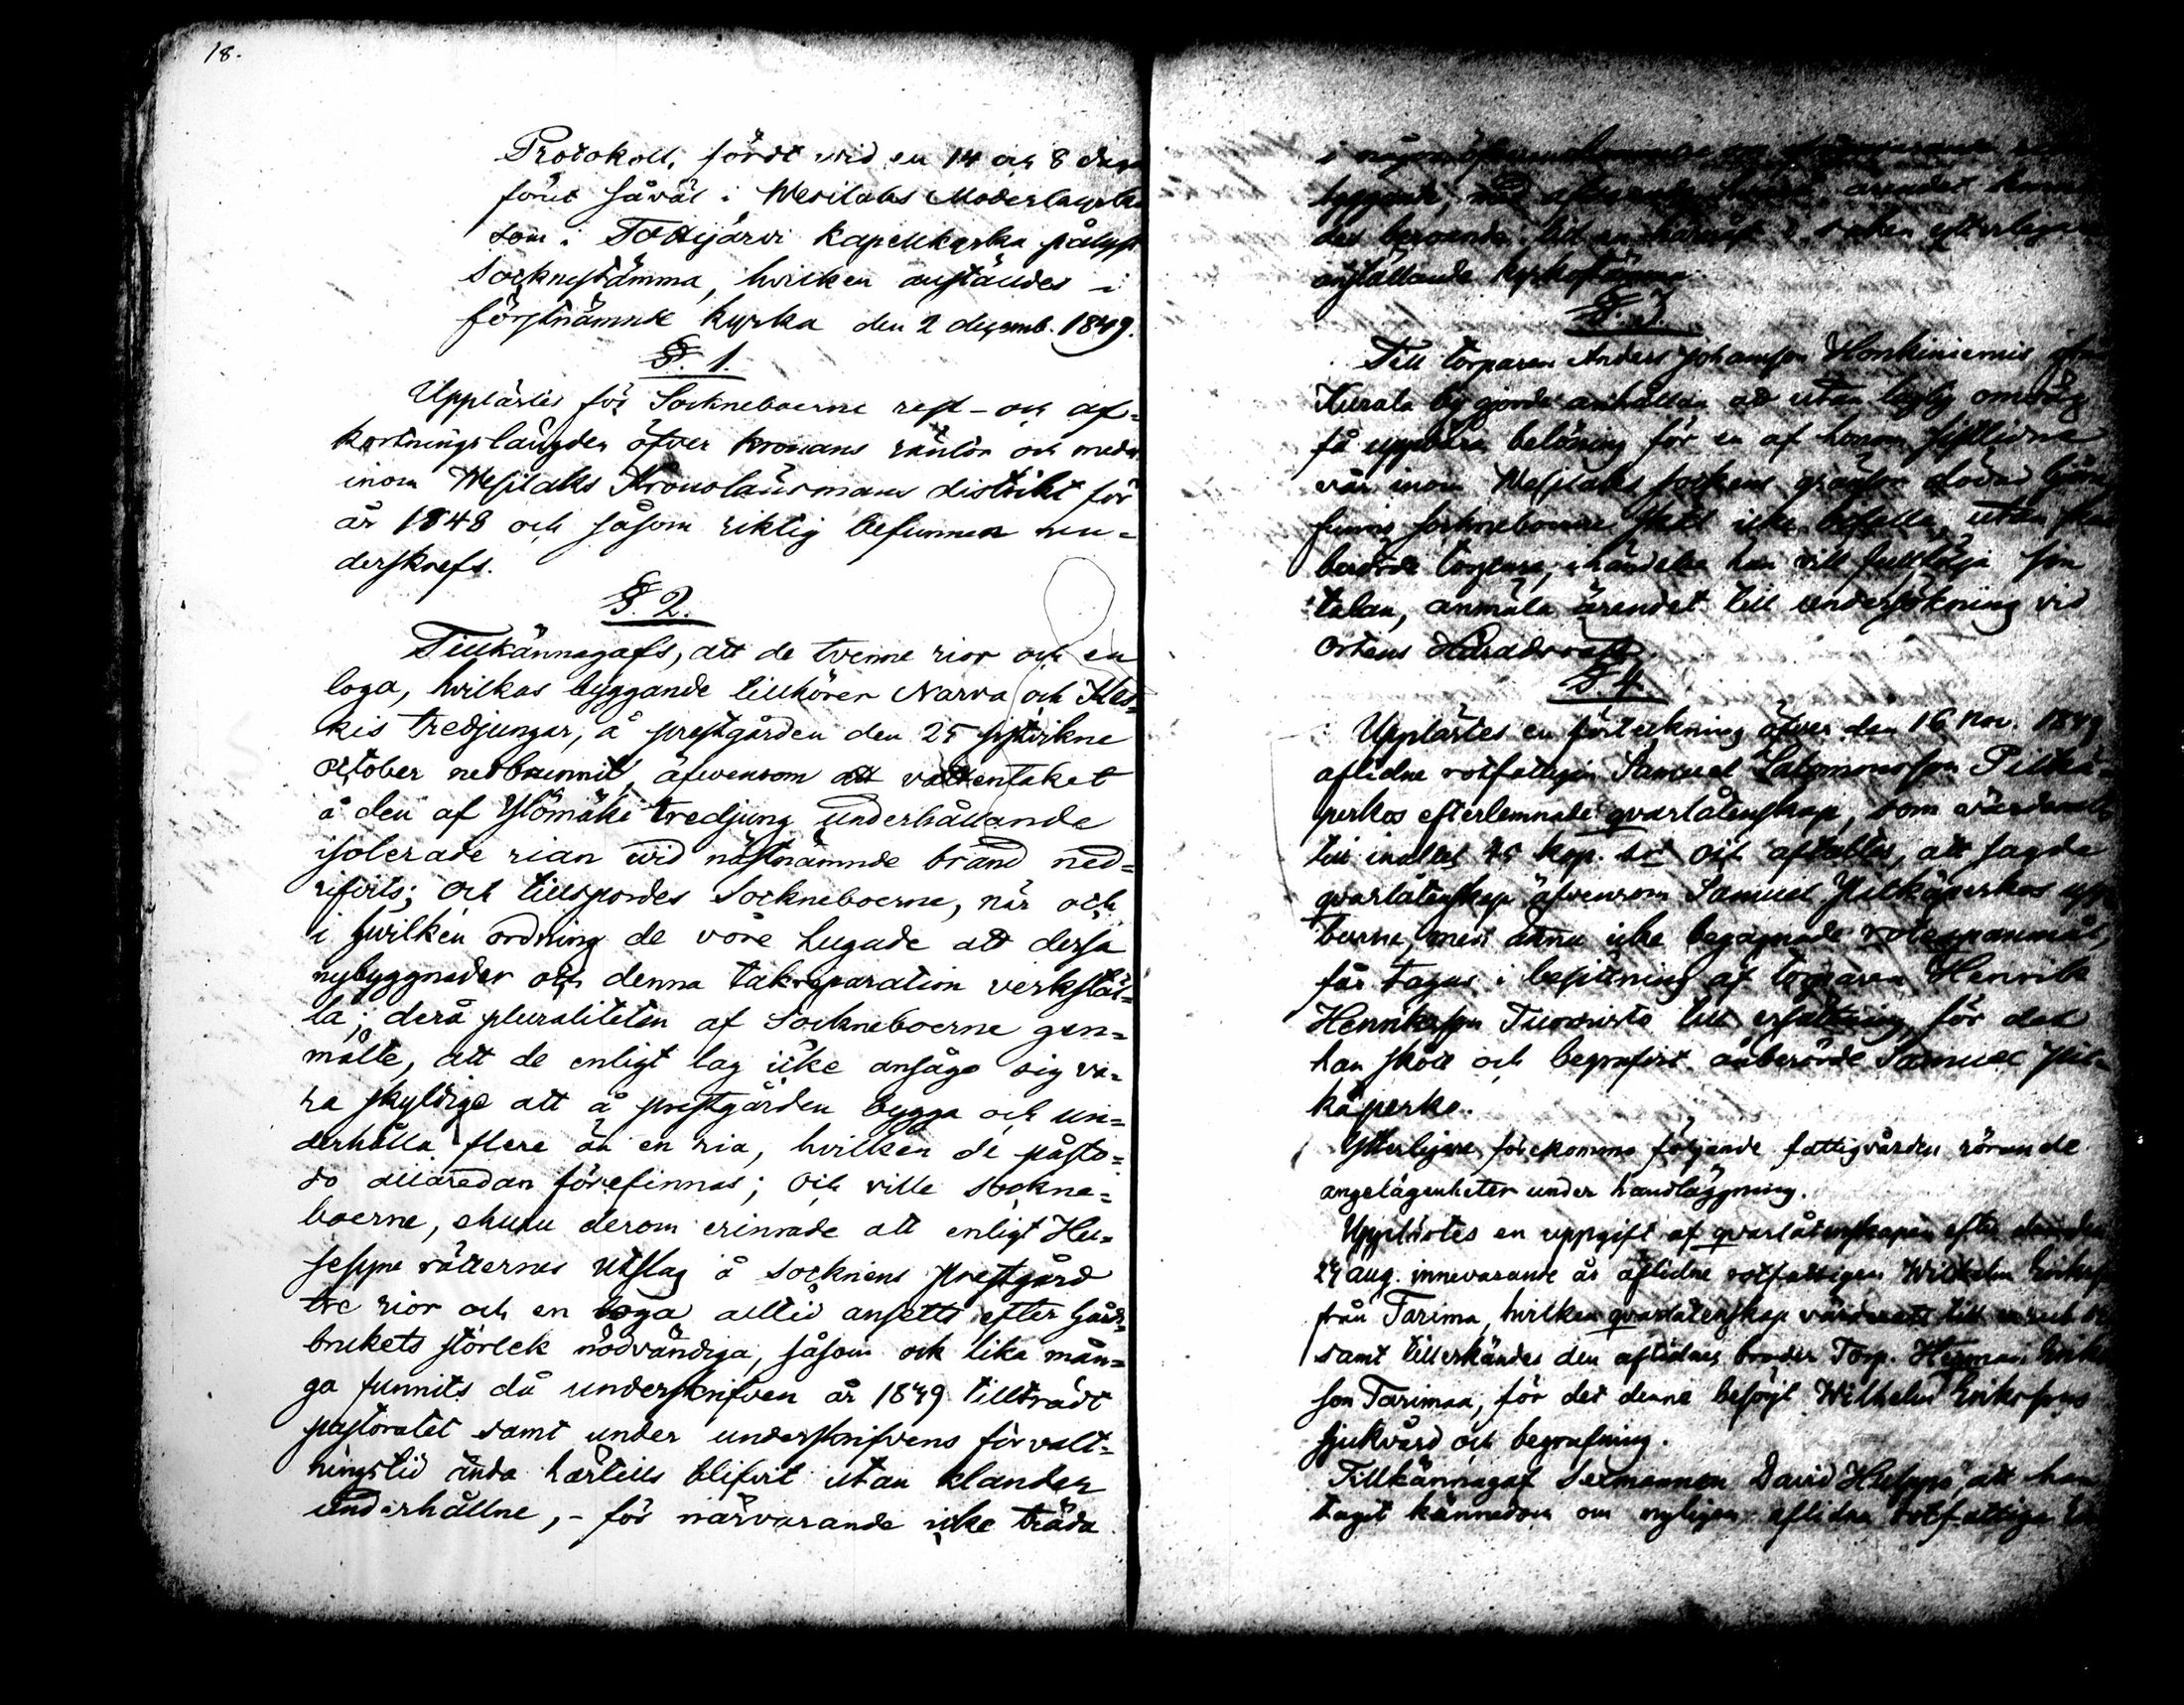 18.
Protokoll, fördt wid en 14 och 8 dagar
förut såväl i Wesilaks Moderkyrka
som i Tottijärvi Kapellkyrka pålyst
Socknestämma, hvilken anställdes i
förstnämnde kyrka den 2 decemb. 1849.
§. 1.
Upplästes för Sockneboerne rest- och af-
kortningslängden öfver kronans räntor och
inom Wesilaks Kronolänsmans distrikt för
år 1848 och såsom riktig befunnen un-
derskrefs.
§. 2.
Tillkännagafs, att de tvenne rior och en
loga, hvilkas byggande tillhörer Narva och Kes-
kis tredjungar, å prestgården den 25 sistvikne
October nedbrunnit, äfvensom att vattentaket
å den af Ylömäki tredjung underhållande
isolerade rian wid nästnämnde brand ned-
rifvits; Och tillspordes Sockneboerne, när och
i hvilken ordning de vore hugade att dessa
nybyggnader och denna takreparation verkstäl-
la; derå pluraliteten af Sockneboerne gen-
mälte, att de enligt lag icke ansågo sig va-
ra skyldige att å prestgården bygga och un-
derhålla flere än en ria, hvilken de påsto-
do allaredan förefinnas; Och ville Sockne-
boerne, ehuru derom erinrade att enligt Hu-
sesyne rätternas utslag å socknens prestgård
tre rior och en loga alltid ansetts efter Jord-
brukets storlek nödvändiga, såsom ock lika mån-
ga funnits då underskrifven år 1849 tillträdt
pastoratet samt under underskrifvens förvalt-
ningstid ända härtills blifvit utan klander
underhållne, - för närvarande icke träda
i någon öfverenskommelse om
byggande, med
det beroende till en
anställande kyrkostämma.
§. 3.
Till torparen Anders Johansson Honkiniemis
Kurala by gjorde anhållan att utan laglig omväg
få uppbära belöning för en af honom sistlidne
vår inom Wesilaks sockens gränsor dödad björn,
funno sockneboerne skäl icke bifalla, utan
berörde torpare, i händelse han vill fullfölja sin
talan, anmäla ärendet till undersökning vid
Ortens Häradsrätt.
§. 4.
Upplästes en förteckning öfver den 16 Nov. 1849
aflidne rotfattigen Samuel Salomonsson Pilkä-
perkos efterlemnade qvarlåtenskap, som värderats
till inalles 45 kop. Sr. Och aftaltes, att sagde
qvarlåtenskap äfvensom Samuel Pilkäperkos upp-
burne, men ännu icke begagnade rotespanmål,
får tagas i besittning af torparen Henrik
Henriksson Tuomisto till ersättning för det
han skött och begrafvit omberörde Samuel Pil-
käperko.
Ytterligare förekommo följande fattigvården rörande
angelägenheter under handläggning.
Upplästes en uppgift af qvarlåtenskapen efter
24 aug. innevarande år aflidne rotfattigen Wilhelm Eriksson
från Tarima, hvilken qvarlåtenskap värderats till en rub
samt tillerkändes den aflidnes broder Torp. Herman Eriks-
son Tarimaa, för det denne besörjt Wilhelm Erikssons
sjukvård och begrafning.
Tillkännagaf Sexmannen David Hulppo, att han
tagit kännedom om nyligen aflidna rotfattiga